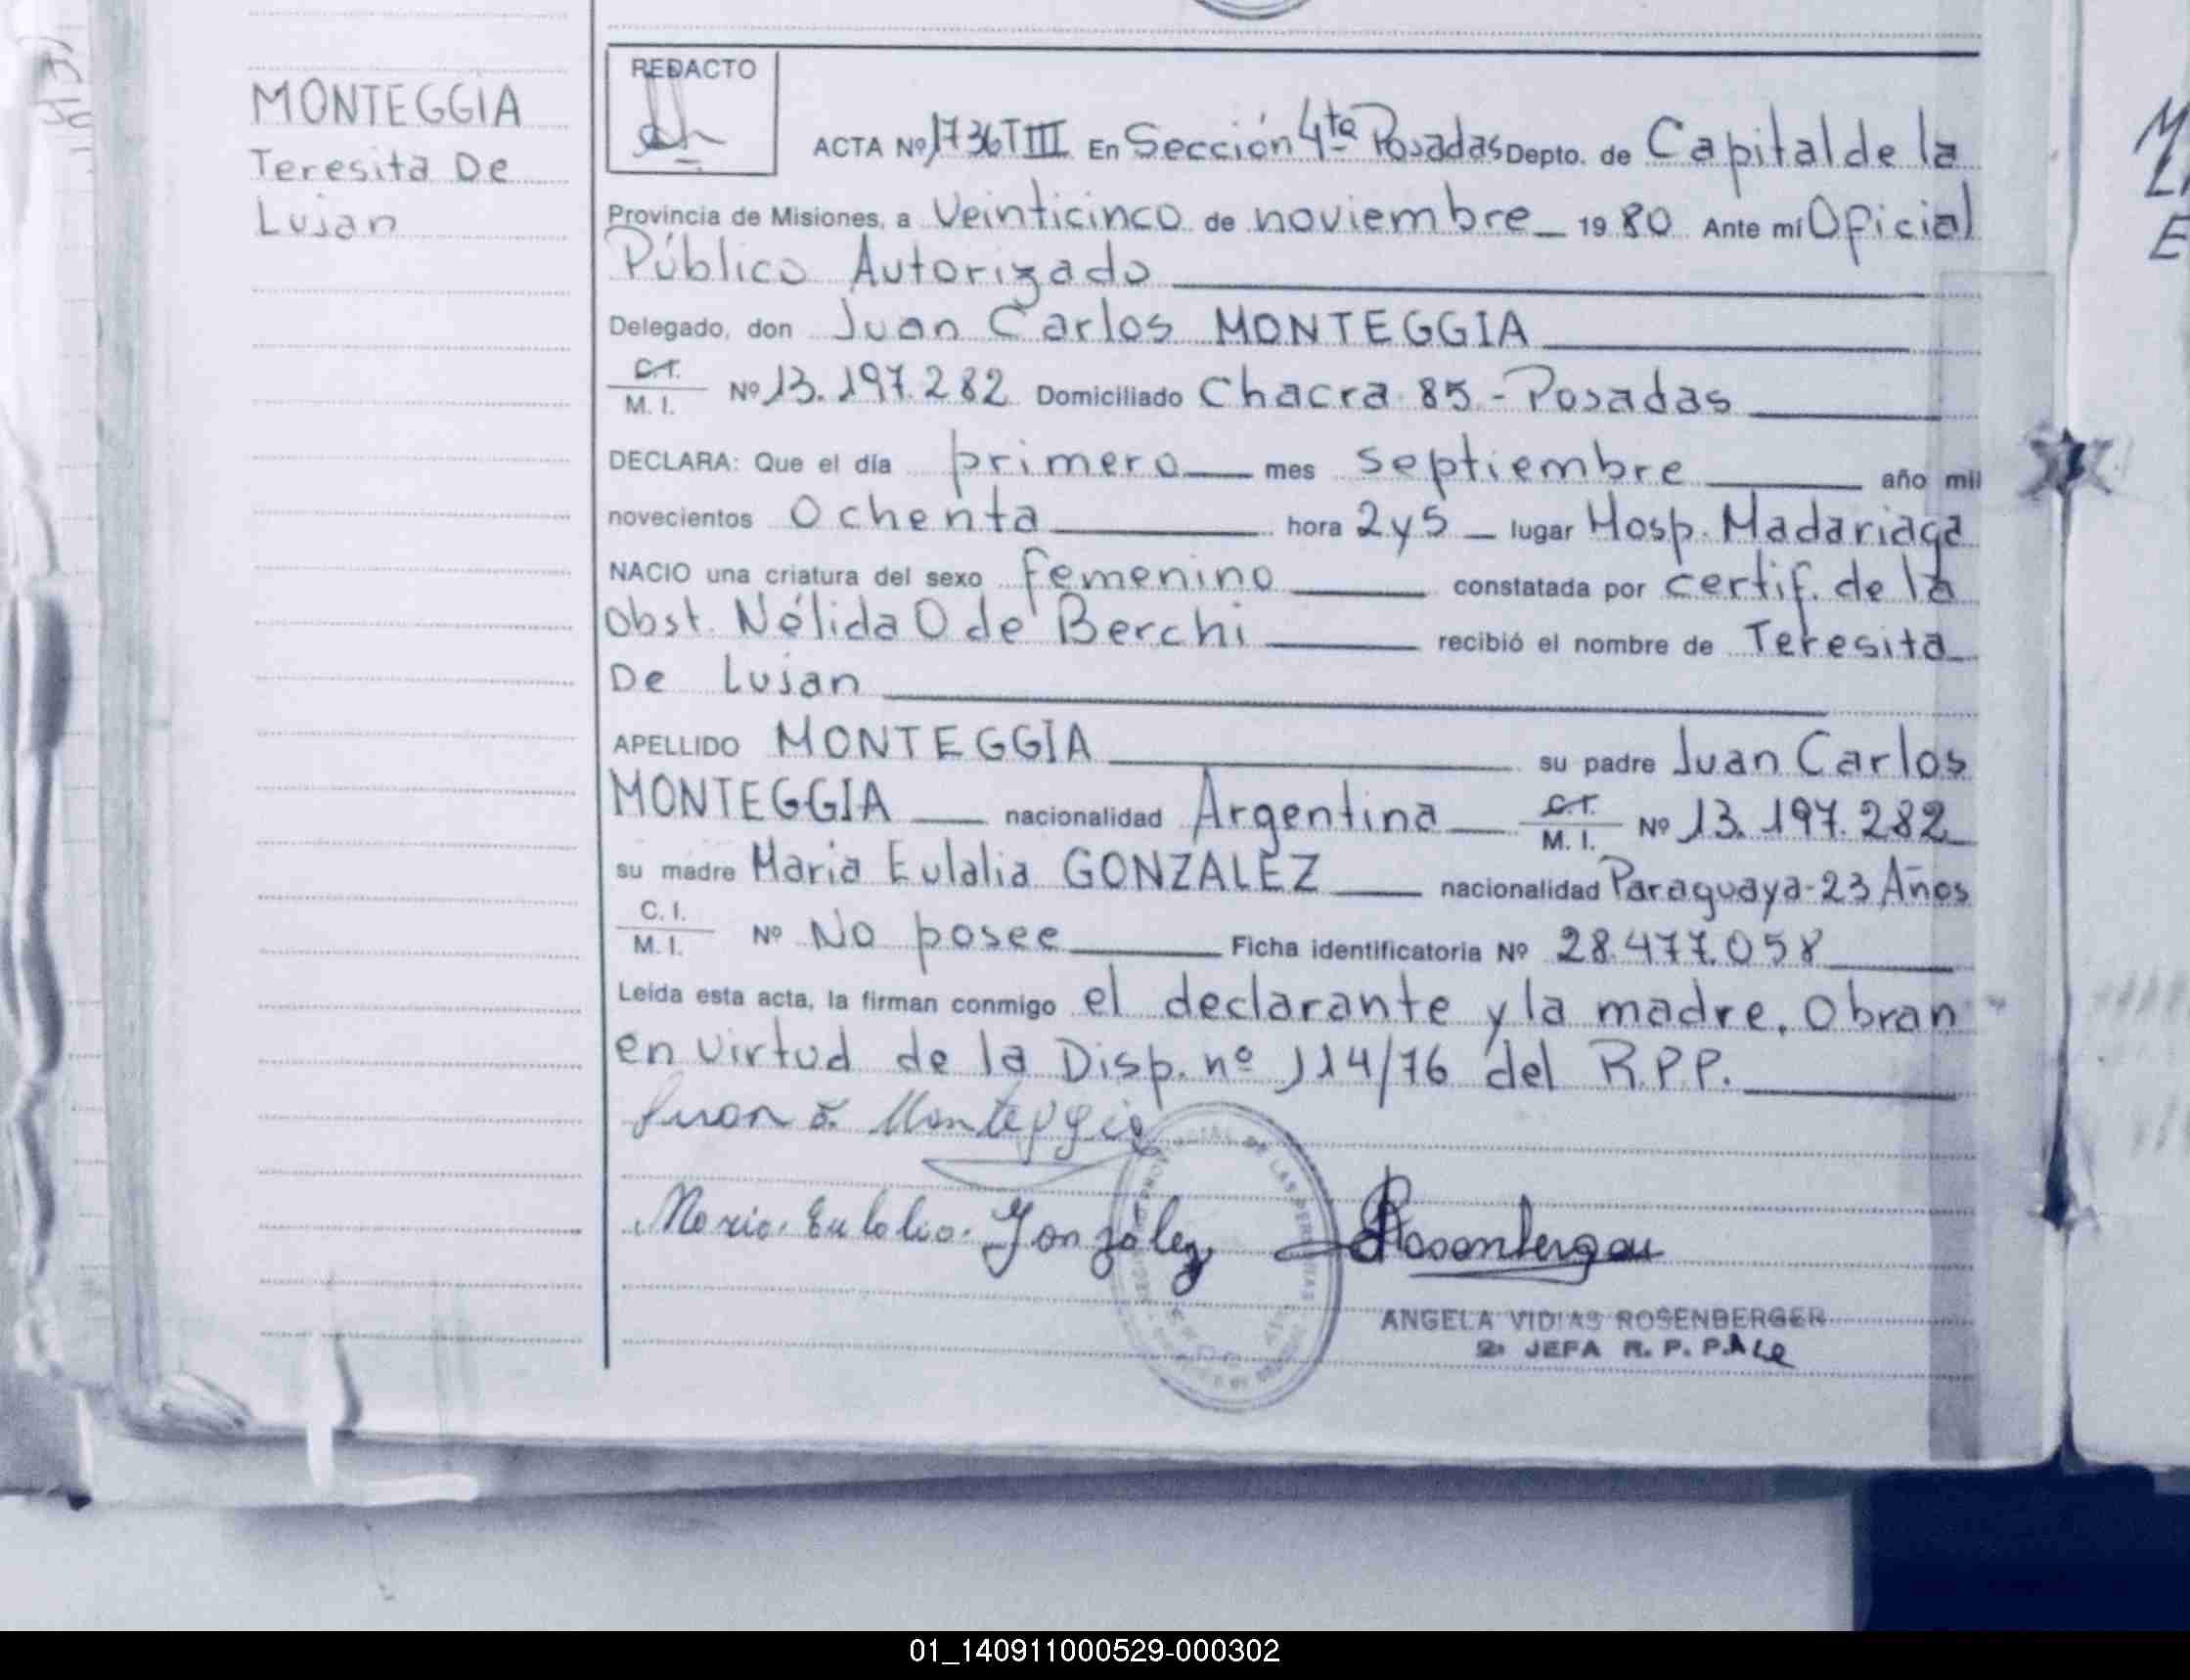 MONTEGGIA
Teresita De
Lujan
REDACTO
ACTA Nº 1736 T III En Sección 4ta Posadas Depto. de Capital de la
Provincia de Misiones, a Veinticinco de noviembre 1980 Ante mí Oficial
Público Autorizado
Delegado, don Juan Carlos MONTEGGIA
C.I.
M. I. Nº 13.197.282 Domiciliado Chacra 85 - Posadas
DECLARA: Que el día primero mes septiembre año mil
novecientos Ochenta hora 2 y 5 lugar Hosp. Madariaga
NACIO una criatura del sexo femenino constatada por certif. de la
Obst. Nélida O de Berchi recibió el nombre de Teresita
De Lujan
APELLIDO MONTEGGIA su padre Juan Carlos
MONTEGGIA nacionalidad Argentina C.I. M. I. Nº 13.197.282
su madre Maria Eulalia GONZALEZ nacionalidad Paraguaya-23 Años
C. I.
M. I. Nº No posee Ficha identificatoria Nº 28.477.058
Leída esta acta, la firman conmigo el declarante y la madre. Obran
en virtud de la Disp. nº 114/76 del R.P.P.
Juan C. Monteggia
Maria Eulalia González
ANGELA VIDIAS ROSENBERGER
2ª JEFA R. P. P.
01_140911000529-000302